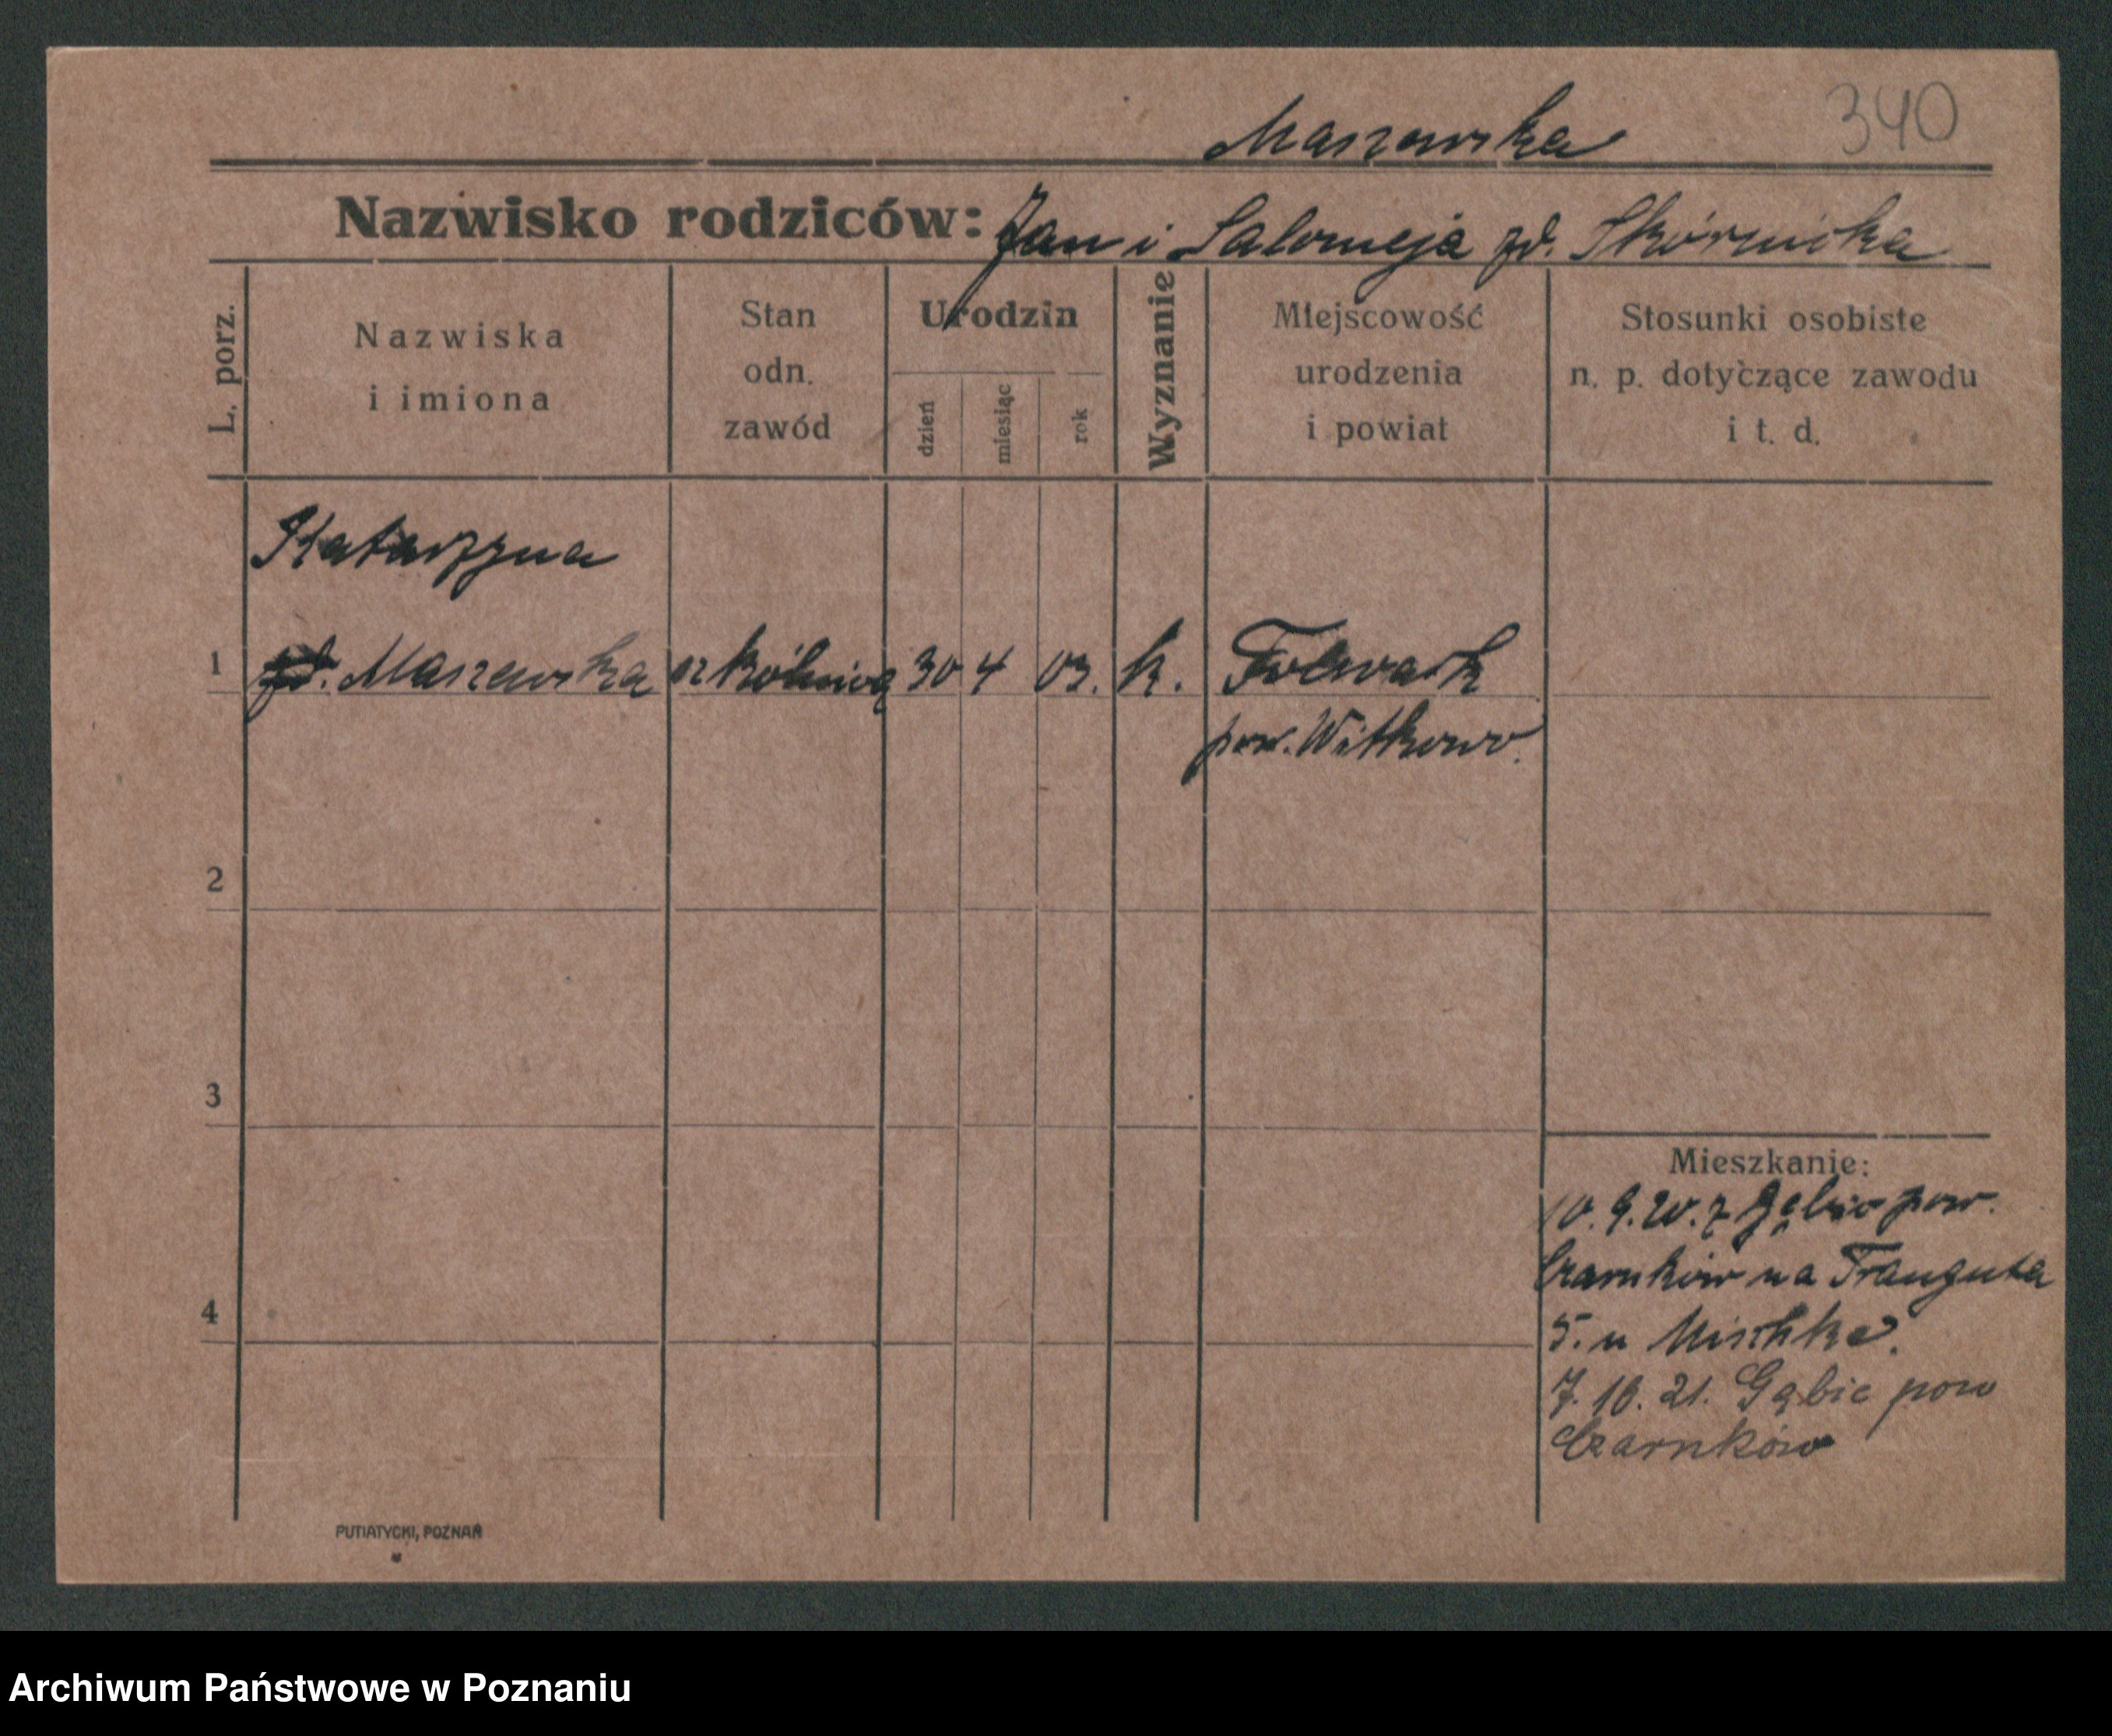 340
Maszewska
Nazwisko rodziców: Jan i Salomeja zd. Skórnicka
L. porz.
Nazwiska
i imiona
Stan
odn.
zawód
Urodzin
dzień
miesiąc
rok
Wyznanie
Miejscowość
urodzenia
i powiat
Stosunki osobiste
n. p. dotyczące zawodu
i t. d.
Katarzyna
1 zd. Maszewska 30 4 03. k. Folwark
pow. Witkowo.
2
3
4
Mieszkanie:
10. 9. 20. z pow.
Czarnków na Trauguta
5. u Mischke.
7. 10. 21. Gębic pow
Czarnków
PUTIATYCKI, POZNAŃ
Archiwum Państwowe w Poznaniu